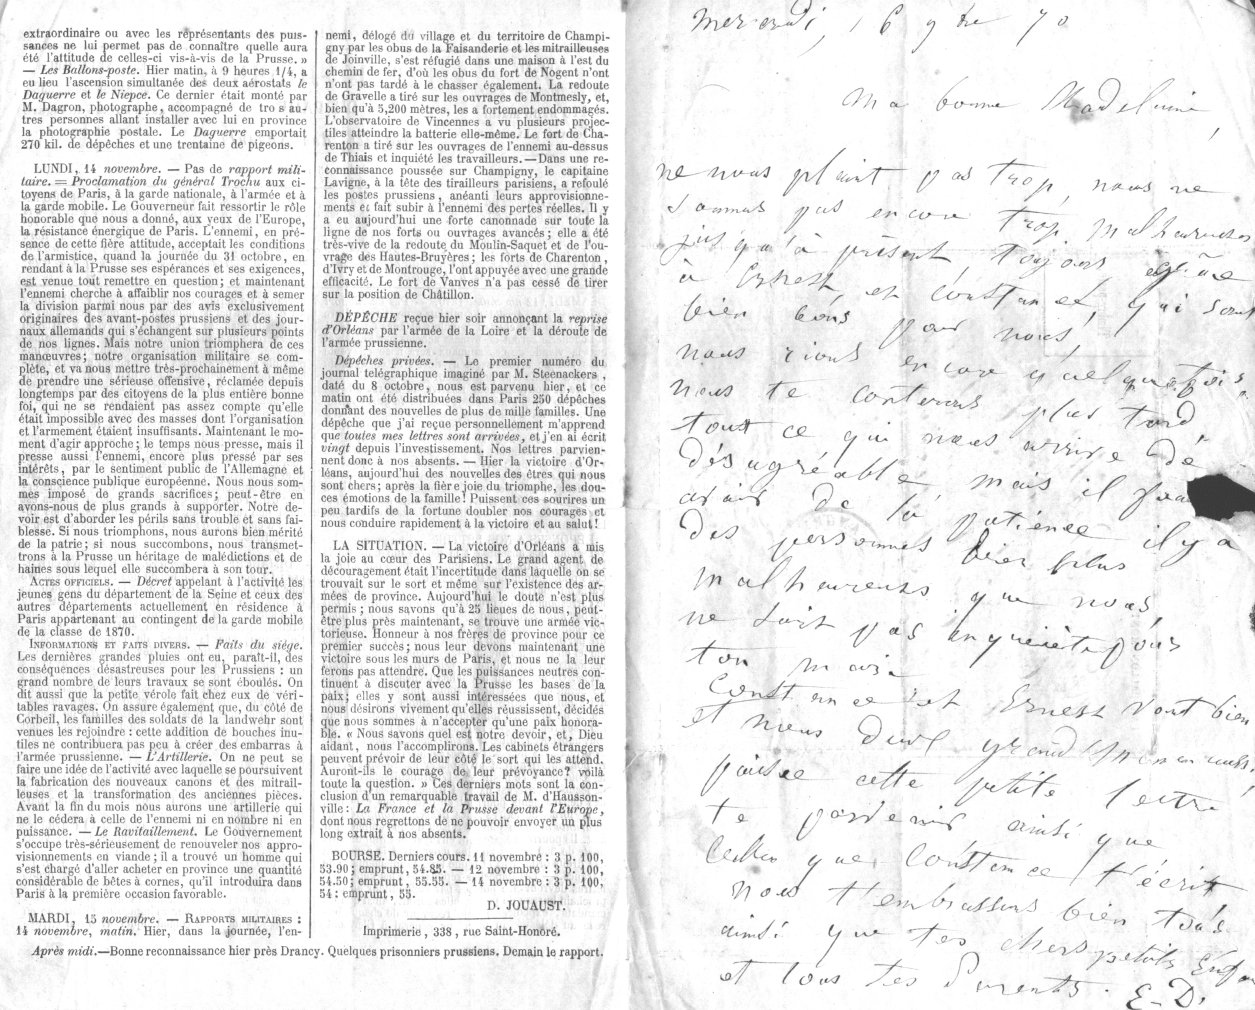 extraordinaire ou avec les représentants des puis-
sances ne lui permet pas de connaître quelle aura
été l'attitude de celles-ci vis-à-vis de la Prusse. »
— Les Ballons-poste. Hier matin, à 9 heures 1/4, a
eu lieu l'ascension simultanée des deux aérostats le
Daguerre et le Niepce. Ce dernier était monté par
M. Dagron, photographe, accompagné de tro s au-
tres personnes allant installer avec lui en province
la photographie postale. Le Daguerre emportait
270 kil. de dépêches et une trentaine de pigeons.
LUNDI, 14 novembre. — Pas de rapport mili-
taire. = Proclamation du général Trochu aux ci-
toyens de Paris, à la garde nationale, à l'armée et à
la garde mobile. Le Gouverneur fait ressortir le rôle
honorable que nous a donné, aux yeux de l'Europe,
la résistance énergique de Paris. L'ennemi, en pré-
sence de cette fière attitude, acceptait les conditions
de l'armistice, quand la journée du 31 octobre, en
rendant à la Prusse ses espérances et ses exigences,
est venue tout remettre en question; et maintenant
l'ennemi cherche à affaiblir nos courages et à semer
la division parmi nous par des avis exclusivement
originaires des avant-postes prussiens et des jour-
naux allemands qui s'échangent sur plusieurs points
de nos lignes. Mais notre union triomphera de ces
manœuvres; notre organisation militaire se com-
plète, et va nous mettre très-prochainement à même
de prendre une sérieuse offensive, réclamée depuis
longtemps par des citoyens de la plus entière bonne
foi, qui ne se rendaient pas assez compte qu'elle
était impossible avec des masses dont l'organisation
et l'armement étaient insuffisants. Maintenant le mo-
ment d'agir approche; le temps nous presse, mais il
presse aussi l'ennemi, encore plus pressé par ses
intérêts, par le sentiment public de l'Allemagne et
la conscience publique européenne. Nous nous som-
mes imposé de grands sacrifices; peut-être en
avons-nous de plus grands à supporter. Notre de-
voir est d'aborder les périls sans trouble et sans fai-
blesse. Si nous triomphons, nous aurons bien mérité
de la patrie; si nous succombons, nous transmet-
trons à la Prusse un héritage de malédictions et de
haines sous lequel elle succombera à son tour.
ACTES OFFICIELS. — Décret appelant à l'activité les
jeunes gens du département de la Seine et ceux des
autres départements actuellement en résidence à
Paris appartenant au contingent de la garde mobile
de la classe de 1870.
INFORMATIONS ET FAITS DIVERS. — Faits du siége.
Les dernières grandes pluies ont eu, paraît-il, des
conséquences désastreuses pour les Prussiens : un
grand nombre de leurs travaux se sont éboulés. On
dit aussi que la petite vérole fait chez eux de véri-
tables ravages. On assure également que, du côté de
Corbeil, les familles des soldats de la landwehr sont
venues les rejoindre : cette addition de bouches inu-
tiles ne contribuera pas peu à créer des embarras à
l'armée prussienne. — L'Artillerie. On ne peut se
faire une idée de l'activité avec laquelle se poursuivent
la fabrication des nouveaux canons et des mitrail-
leuses et la transformation des anciennes pièces.
Avant la fin du mois nous aurons une artillerie qui
ne le cédera à celle de l'ennemi ni en nombre ni en
puissance. — Le Ravitaillement. Le Gouvernement
s'occupe très-sérieusement de renouveler nos appro-
visionnements en viande; il a trouvé un homme qui
s'est chargé d'aller acheter en province une quantité
considérable de bêtes à cornes, qu'il introduira dans
Paris à la première occasion favorable.
MARDI, 15 novembre. — RAPPORTS MILITAIRES :
14 novembre, matin. Hier, dans la journée, l'en-
nemi, délogé du village et du territoire de Champi-
gny par les obus de la Faisanderie et les mitrailleuses
de Joinville, s'est réfugié dans une maison à l'est du
chemin de fer, d'où les obus du fort de Nogent n'ont
n'ont pas tardé à le chasser également. La redoute
de Gravelle a tiré sur les ouvrages de Montmesly, et,
bien qu'à 5,200 mètres, les a fortement endommagés.
L'observatoire de Vincennes a vu plusieurs projec-
tiles atteindre la batterie elle-même. Le fort de Cha-
renton a tiré sur les ouvrages de l'ennemi au-dessus
de Thiais et inquiété les travailleurs. — Dans une re-
connaissance poussée sur Champigny, le capitaine
Lavigne, à la tête des tirailleurs parisiens, a refoulé
les postes prussiens, anéanti leurs approvisionne-
ments et fait subir à l'ennemi des pertes réelles. Il y
a eu aujourd'hui une forte canonnade sur toute la
ligne de nos forts ou ouvrages avancés; elle a été
très-vive de la redoute du Moulin-Saquet et de l'ou-
vrage des Hautes-Bruyères; les forts de Charenton,
d'Ivry et de Montrouge, l'ont appuyée avec une grande
efficacité. Le fort de Vanves n'a pas cessé de tirer
sur la position de Châtillon.
DÉPÊCHE reçue hier soir annonçant la reprise
d'Orléans par l'armée de la Loire et la déroute de
l'armée prussienne.
Dépêches privées. — Le premier numéro du
journal télégraphique imaginé par M. Steenackers,
daté du 8 octobre, nous est parvenu hier, et ce
matin ont été distribuées dans Paris 250 dépêches
donnant des nouvelles de plus de mille familles. Une
dépêche que j'ai reçue personnellement m'apprend
que toutes mes lettres sont arrivées, et j'en ai écrit
vingt depuis l'investissement. Nos lettres parvien-
nent donc à nos absents. — Hier la victoire d'Or-
léans, aujourd'hui des nouvelles des êtres qui nous
sont chers; après la fière joie du triomphe, les dou-
ces émotions de la famille! Puissent ces sourires un
peu tardifs de la fortune doubler nos courages et
nous conduire rapidement à la victoire et au salut!
LA SITUATION. — La victoire d'Orléans a mis
la joie au cœur des Parisiens. Le grand agent de
découragement était l'incertitude dans laquelle on se
trouvait sur le sort et même sur l'existence des ar-
mées de province. Aujourd'hui le doute n'est plus
permis; nous savons qu'à 25 lieues de nous, peut-
être plus près maintenant, se trouve une armée vic-
torieuse. Honneur à nos frères de province pour ce
premier succès; nous leur devons maintenant une
victoire sous les murs de Paris, et nous ne la leur
ferons pas attendre. Que les puissances neutres con-
tinuent à discuter avec la Prusse les bases de la
paix; elles y sont aussi intéressées que nous, et
nous désirons vivement qu'elles réussissent, décidés
que nous sommes à n'accepter qu'une paix honora-
ble. « Nous savons quel est notre devoir, et, Dieu
aidant, nous l'accomplirons. Les cabinets étrangers
peuvent prévoir de leur côté le sort qui les attend.
Auront-ils le courage de leur prévoyance? voilà
toute la question. » Ces derniers mots sont la con-
clusion d'un remarquable travail de M. d'Hausson-
ville : La France et la Prusse devant l'Europe,
dont nous regrettons de ne pouvoir envoyer un plus
long extrait à nos absents.
BOURSE. Derniers cours. 11 novembre : 3 p. 100,
53.90; emprunt, 54.85. — 12 novembre : 3 p. 100,
54.50; emprunt, 55.55. — 14 novembre : 3 p. 100,
54 : emprunt, 55.
D. JOUAUST.
Imprimerie, 338, rue Saint-Honoré.
Après midi.—Bonne reconnaissance hier près Drancy. Quelques prisonniers prussiens. Demain le rapport.
Mercredi, 16 9bre 70
Ma bonne Madeleine
ne nous plaint pas trop, nous ne
sommes pas encore trop malheureux
jusqu'à présent, toujours grâce
à Ernest et Constance, qui sont
bien bons pour nous,
nous rions encore quelquefois
nous te conterons plus tard
tout ce qui nous arrive de
désagréable mais il faut
avoir de la patience il y a
des personnes bien plus
malheureux que nous
ne soit pas inquiète pour
ton mari
Constance et Ernest vont bien
et nous deux grand maman aussi
puisse cette petite lettre
te parvenir ainsi que
celles que Constance t'écrit
nous t'embrassons bien tous
ainsi que tes chers petits Enfan
et tous tes Parents. E. D.